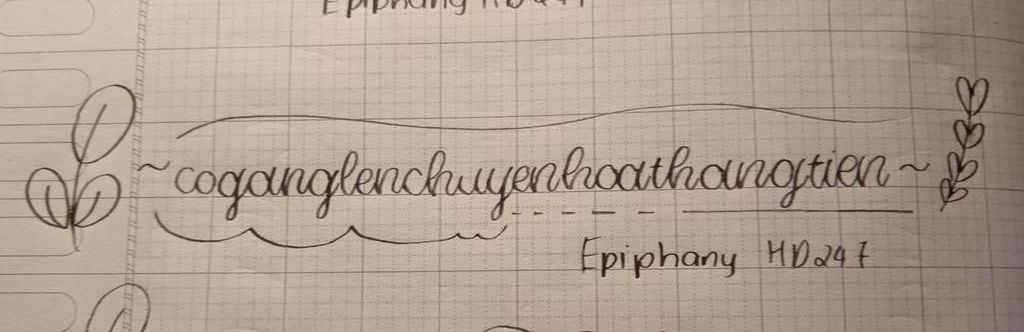 Epiphany HD247
~coganglenchuyenhoathangtien~
Epiphany HD247